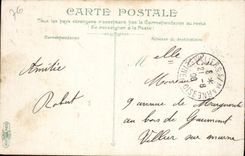 26
CARTE POSTALE
Tous les pays étrangers n'acceptent pas la Correspondance au recto
Se renseigner à la Poste
Correspondance
Adresse du destinataire
Amitié
Robert
Melle
9 avenue de
au bois de Gaumont
Villier sur marne